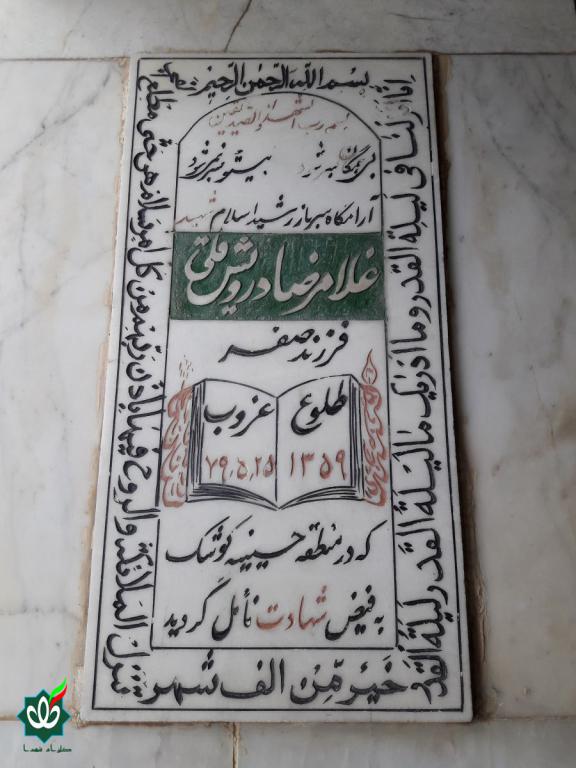 بسم الله الرحمن الرحیم
انا انزلنا فی لیلة القدر وما ادریک ما لیلة القدر لیلة القدر
خیر من الف شهر
تنزل الملائکة والروح فیها باذن ربهم من کل امر سلام هی حتی مطلع
بسم رب الشهداء والصدیقین
بی همگان بسر شود بی‌تو بسر نمی‌شود
آرامگاه سرباز رشید اسلام شهید
غلامرضا درویش ملقی
فرزند صفر
طلوع غروب
۱۳۵۹ ۷۹،۵،۲۵
که در منطقه حسینیه کوشک
به فیض شهادت نائل گردید